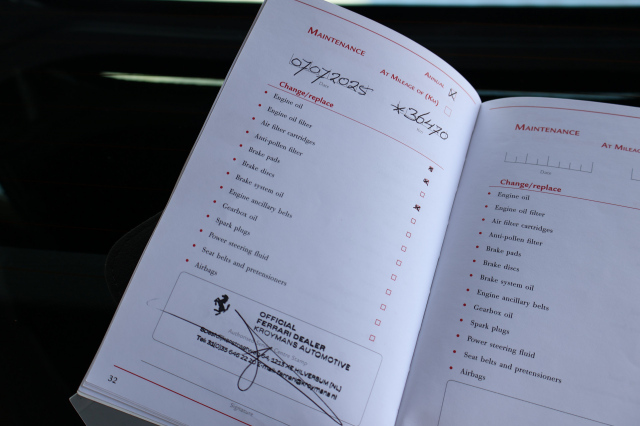 Maintenance
Annual
At Mileage of (Km)
07072025
*36470
Date
Change/replace
Engine oil
Engine oil filter
Air filter cartridges
Anti-pollen filter
Brake pads
Brake discs
Brake system oil
Engine ancillary belts
Gearbox oil
Spark plugs
Power steering fluid
Seat belts and pretensioners
Airbags
OFFICIAL
FERRARI DEALER
KROYMANS AUTOMOTIVE
1213 NE HILVERSUM (NL)
Signature
32
Maintenance
At Mileag
Date
Change/replace
Engine oil
Engine oil filter
Air filter cartridges
Anti-pollen filter
Brake pads
Brake discs
Brake system oil
Engine ancillary belts
Gearbox oil
Spark plugs
Power steering fluid
Seat belts and pretensioners
Airbags